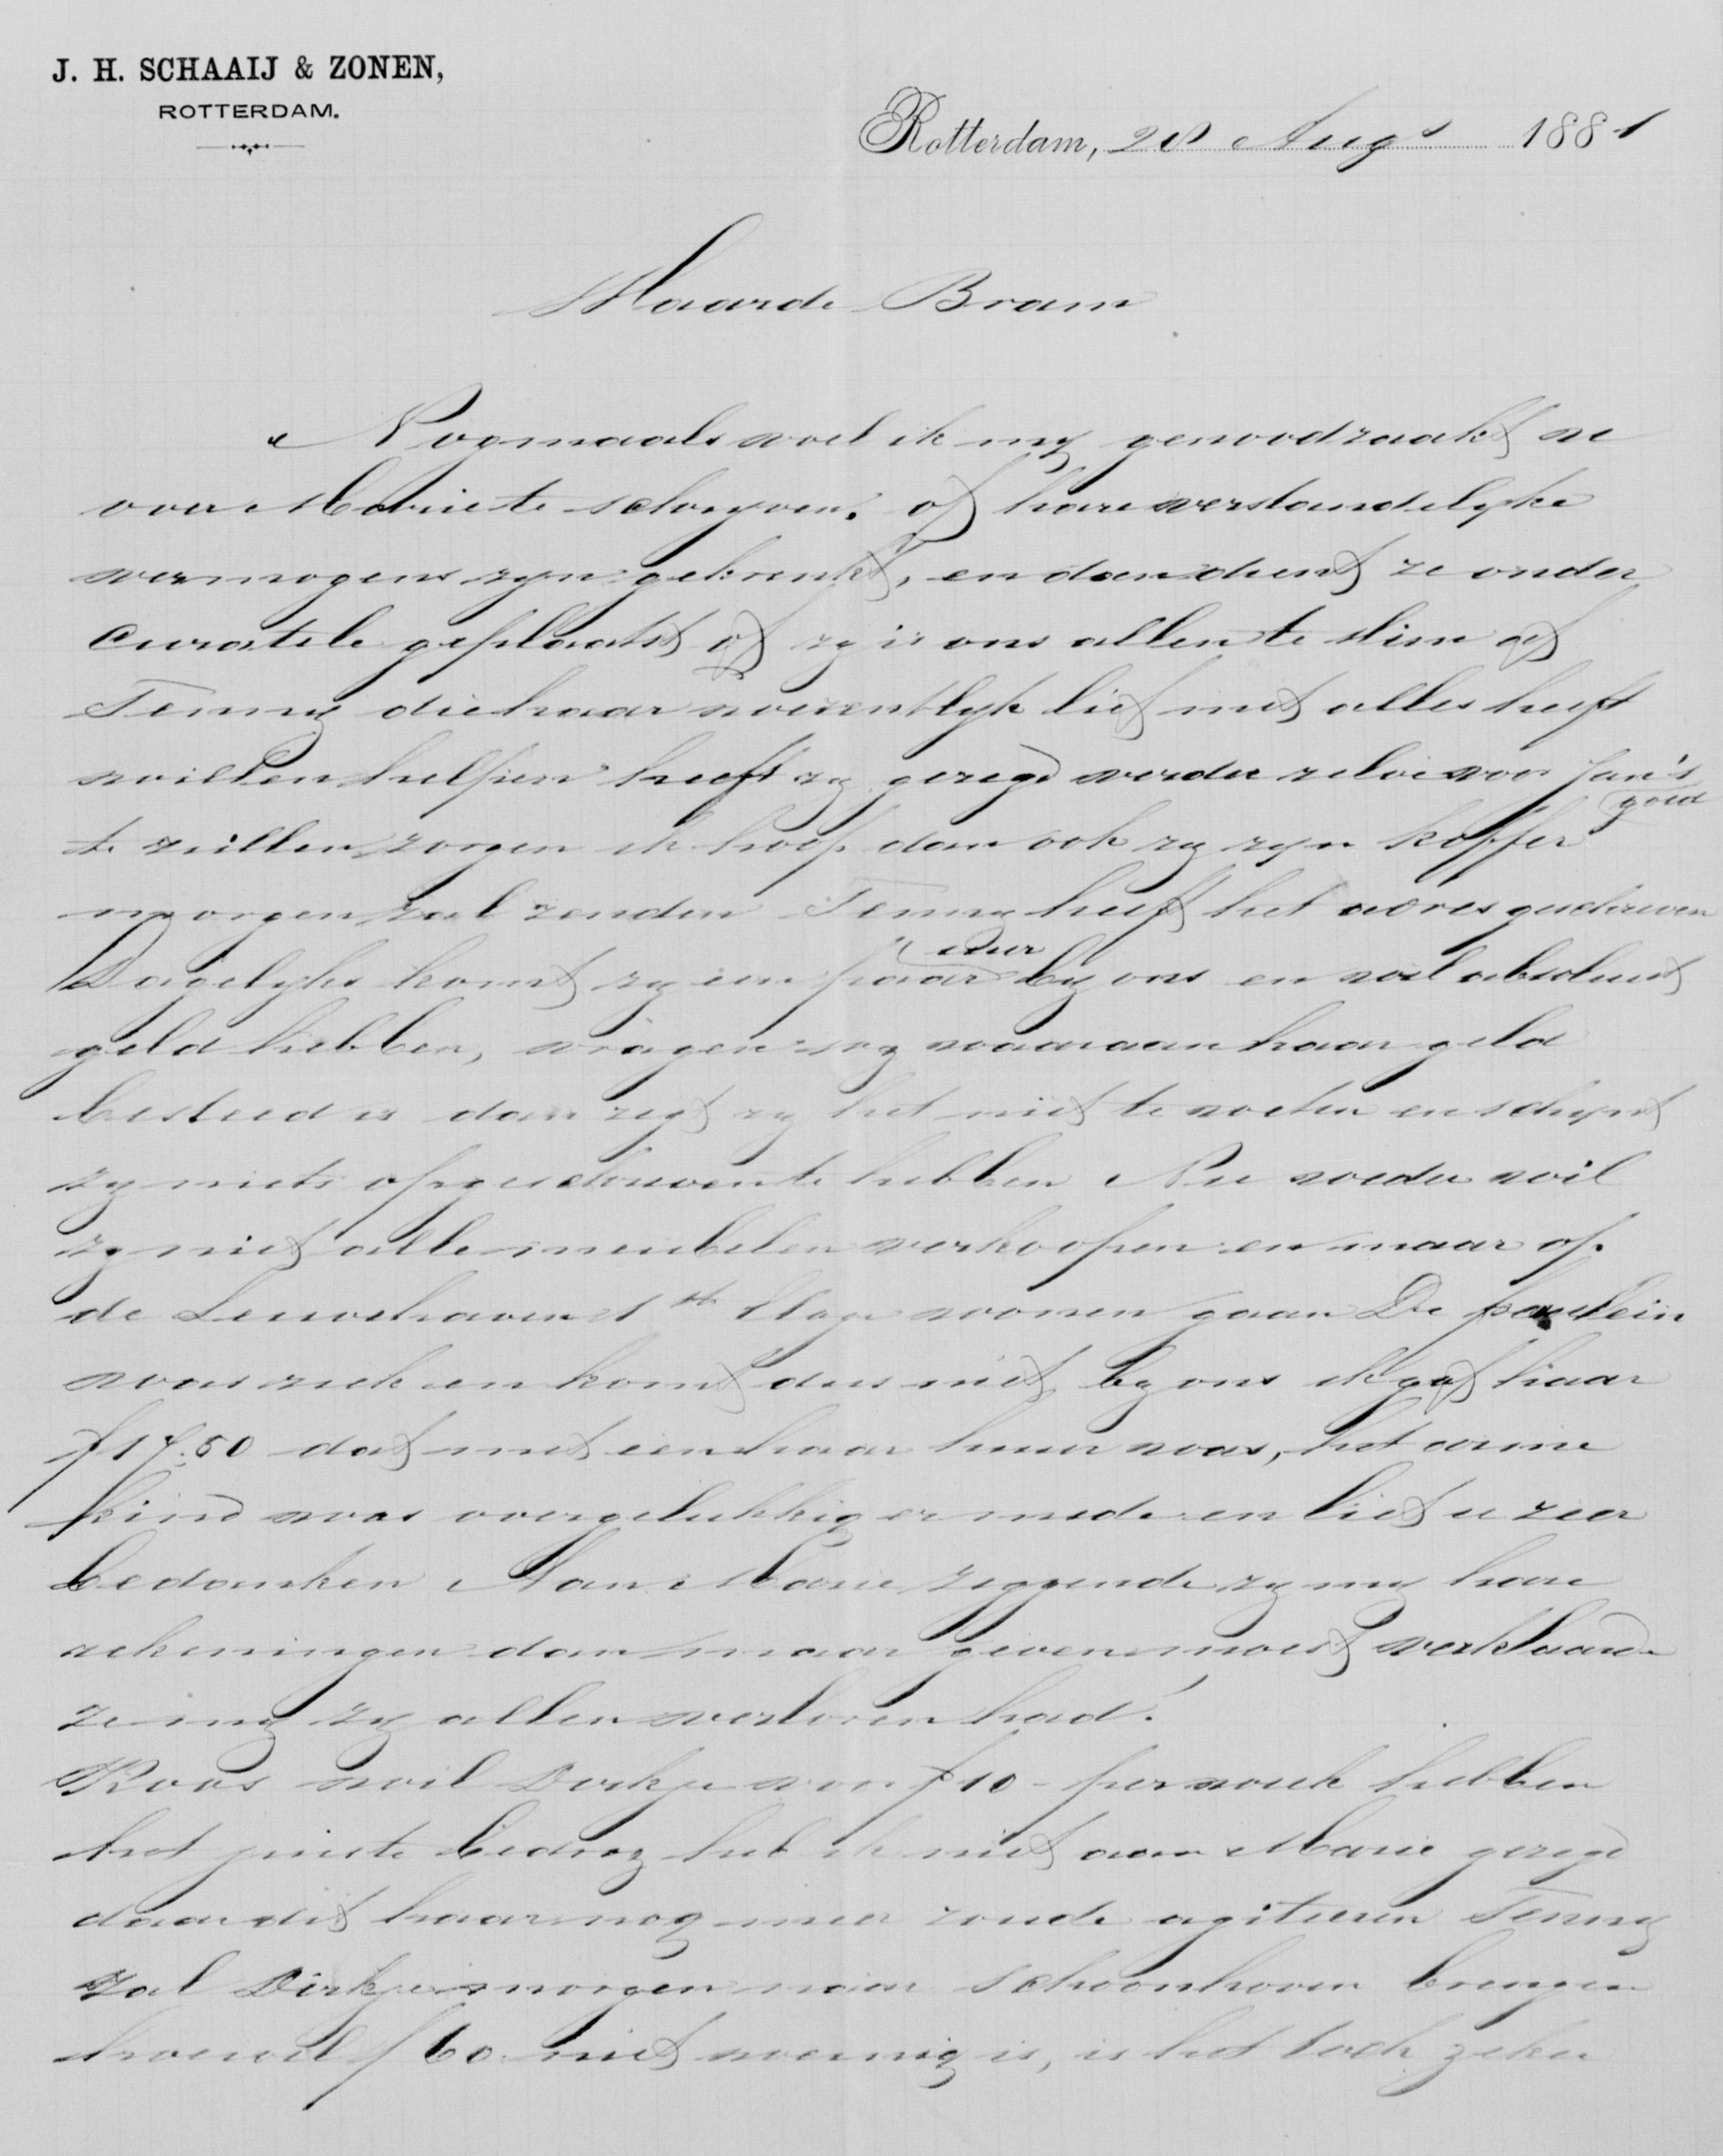 J. H. SCHAAIJ & ZONEN,
ROTTERDAM.
Rotterdam, 28 Augs 1881
Waarde Bram
Nogmaals voel ik my genoodzaakt u
over Marie te schryven. of hare verstandelyke
vermogens zyn gekrenkt, en dan dient ze onder
curatele geplaatst of zy is ons allen te slim af
Jenny die haar wezentlyk lief met alles heeft
willen helpen heeft zy gezegd verder zelve voor Jan's
goed
te zullen zorgen ik hoop dan ook zy zyn koffer
morgen zal zenden Jenny heeft het adres geschreven
uur
Dagelyks komt zy een paar by ons en wil absoluut
geld hebben, vragen wy waaraan haar geld
besteed is dan zegt zy het niet te weten en schynt
zy niets opgeschreven te hebben Nu weder wil
zy niet alle meubelen verkoopen en maar op
de Leuvehaven 1ste Etage wonen gaan De
was ziek en komt dus niet by ons ik gaf haar
f 17.50 dat met een haar huur was, het arme
kind was overgelukkig er mede en liet u zeer
bedanken Aan Marie zeggende zy my hare
rekeningen dan maar geven moest verklaarde
ze my zy allen verloren had!
Roos wil Dirkje voor f 10 - per week hebben
het juiste bedrag heb ik niet aan Marie gezegd
daar dit haar nog meer zoude agiteeren Jenny
zal Dirkje morgen naar Schoonhoven brengen
hoewel f 60 niet weinig is, is het toch zeker